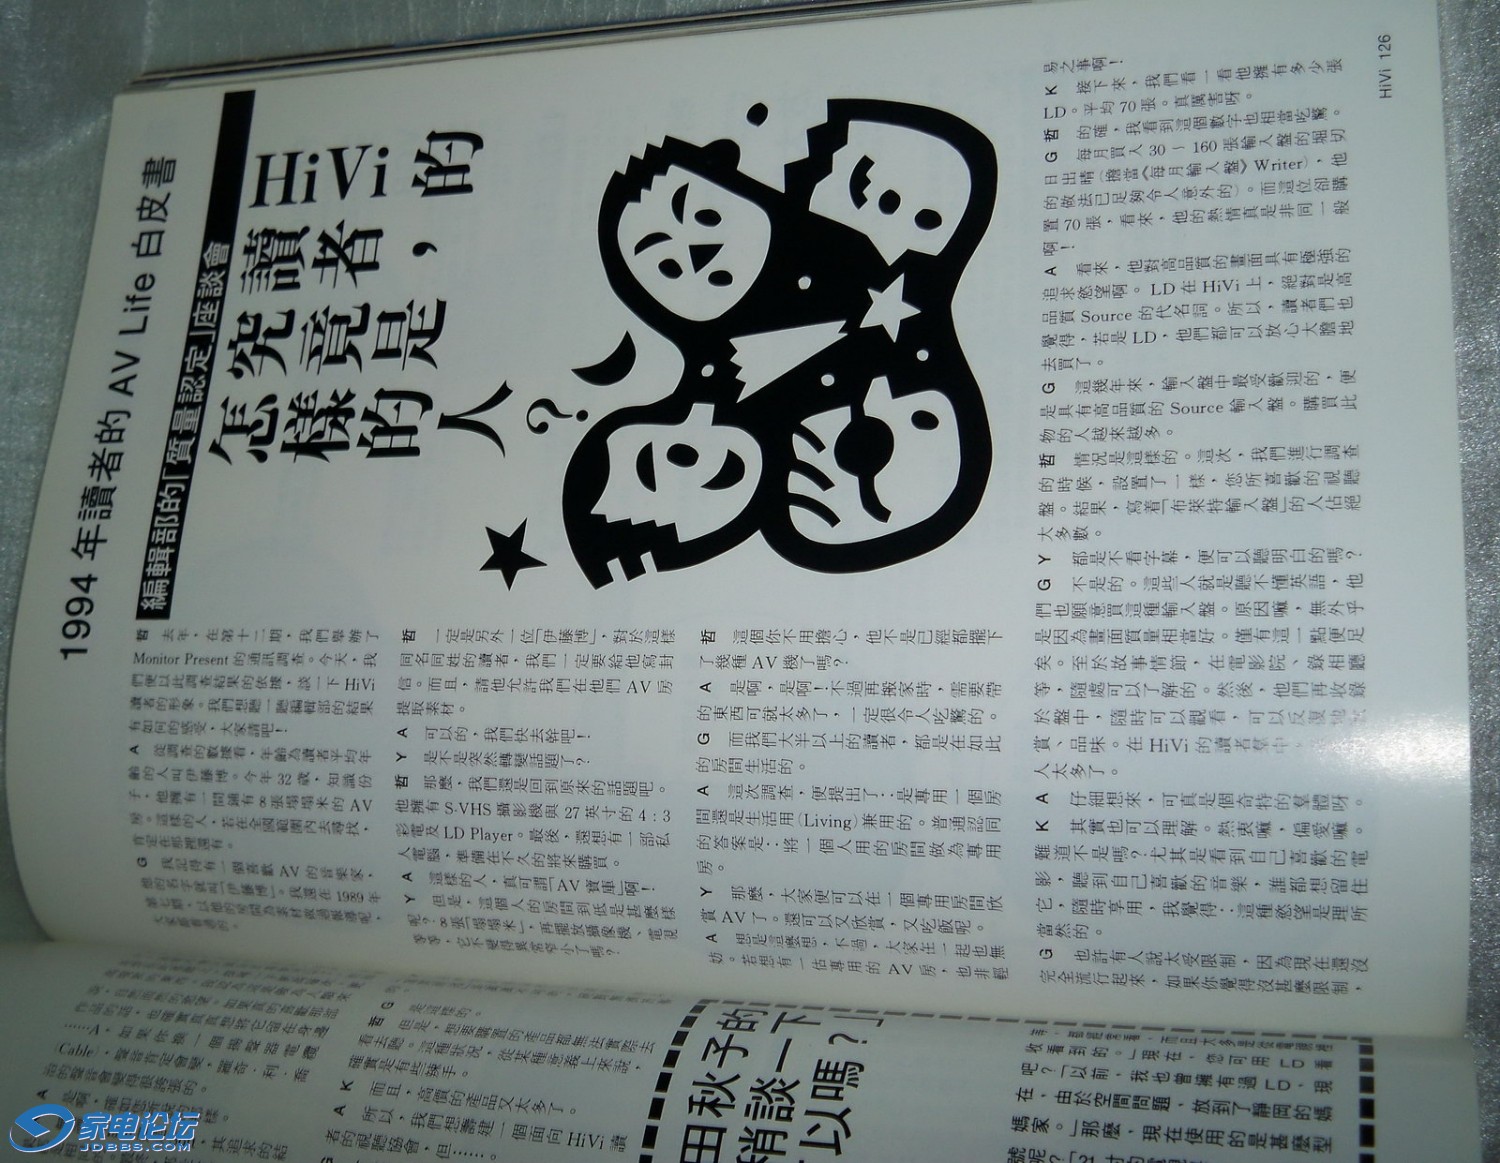 1994 年讀者的 AV Life 白皮書
編輯部的「質量認定」座談會
HiVi
讀者，的
究竟是
怎樣的人？
哲 去年，在第十二期，我們舉辦了
Monitor Present 的通訊調查。今天，我
們便以此調查結果的依據，談一下 HiVi
讀者的形象。我們想聽一聽編輯部的結果
有如何的感受，大家請吧！
A 從調查的數據看，年齡為讀者平均年
齡的人叫伊藤博。今年 32 歲，知識份
子，他擁有一間鋪有8張塌塌米的 AV
房。這樣的人，若在全國範圍內去尋找，
肯定在那裡還有。
G 我記得有一個喜歡 AV 的音樂家，
他的名字就叫「伊藤博」。我還在 1989 年
第七期，以他的房間為素材做過報導呢，
哲 一定是另外一位「伊藤博」，對於這樣
同名同姓的讀者，我們一定要給他寫封
信。而且，請他允許我們在他們 AV 房
提取素材。
A 可以的，我們快去幹吧！
Y 是不是突然轉變話題了？
哲 那麼，我們還是回到原來的話題吧。
他擁有 S-VHS 攝影機與 27 英寸的 4：3
彩電及 LD Player。最後，還想有一部私
人電腦，準備在不久的將來購買。
A 這樣的人，真可謂「AV 寶庫」啊！
Y 但是，這個人的房間到底是甚麼樣
呢？8張「塌塌米」，再擺放攝像機、電視
等等，它不變得異常窄小了嗎？
哲 這個你不用擔心，他不是已經都擺下
了幾種 AV 機了嗎？
A 是啊，是啊！不過再搬家時，需要帶
的東西可就太多了，一定很令人吃驚的。
G 而我們大半以上的讀者，都是在如此
的房間生活的。
A 這次調查，便提出了：是專用一個房
間還是生活用（Living）兼用的。普通認同
的答案是：將一個人用的房間做為專用
房。
Y 那麼，大家便可以在一個專用房間欣
賞 AV 了。還可以又欣賞，又吃飯呢。
A 想是這麼想，不過，大家住一起也無
妨。若想有一佔專用的 AV 房，也非輕
易之事啊！
K 接下來，我們看一看他擁有多少張
LD。平均 70 張。真厲害呀。
哲 的確，我看到這個數字也相當吃驚。
G 每月買入 30～160 張輸入盤的堀切
日出晴（擔當《每月輸入盤》Writer），他
的做法已足夠令人意外的）。而這位卻購
置 70 張，看來，他的熱情真是非同一般
啊！
A 看來，他對高品質的畫面具有極強的
追求慾望啊。LD 在 HiVi 上，絕對是高
品質 Source 的代名詞。所以，讀者們也
覺得，若是 LD，他們都可以放心大膽地
去買了。
G 這幾年來，輸入盤中最受歡迎的，便
是具有高品質的 Source 輸入盤。購買此
物的人越來越多。
哲 情況是這樣的。這次，我們進行調查
的時候，設置了一樣，您所喜歡的視聽
盤。結果，寫着「布萊特輸入盤」的人佔絕
大多數。
Y 都是不看字幕，便可以聽明白的嗎？
G 不是的。這些人就是聽不懂英語，他
們也願意買這種輸入盤。原因嘛，無外乎
是因為畫面質量相當好。僅有這一點便足
矣。至於故事情節，在電影院、錄相廳
等，隨處可以了解的。然後，他們再收錄
於盤中，隨時可以觀看，可以反復地
賞、品味。在 HiVi 的讀者羣中，
人太多了。
A 仔細想來，可真是個奇特的羣體呀。
K 其實也可以理解。熱衷嘛，偏愛嘛。
難道不是嗎？尤其是看到自己喜歡的電
影，聽到自己喜歡的音樂，誰都想留住
它，隨時享用，我覺得：這種慾望是理所
當然的。
G 也許有人說太受限制，因為現在還沒
完全流行起來，如果你覺得沒甚麼限制，
HiVi 126
作品的話，也確實真真想將它留在身邊
……A，如果你換一個揚聲器電纜
(Cable)，聲音肯定會變，羅奇·利·喬
治的聲音會變得很誇張的。
A 是啊，確如您所說的這樣。
其追求的結
G 是這樣的。
哲 但是，想要購置的產品都無法實際去
看去聽。這種狀況，從某種意義上來說，
確實是有些棘手。
K 而且，高價的產品又太多了。
A 所以，我們想籌建一個面向 HiVi 讀
者的視聽協會，但……。
田秋子的
稍談一下
以嗎？」
收看到的。」現在，您可用 LD 看
吧？「以前，我也曾擁有過 LD，現
在，由於空間問題，放到了靜岡的媽
媽家。」那麼，現在使用的是甚麼型
號呢？「21 寸的
家电论坛
JDBBS.COM